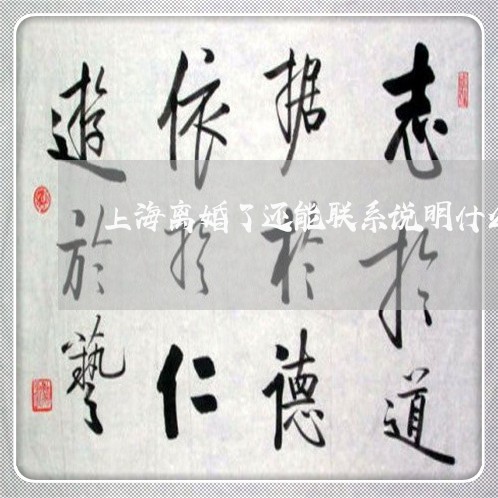 志於道
据於德
依於仁
遊於藝
上海离婚了还能联系说明什